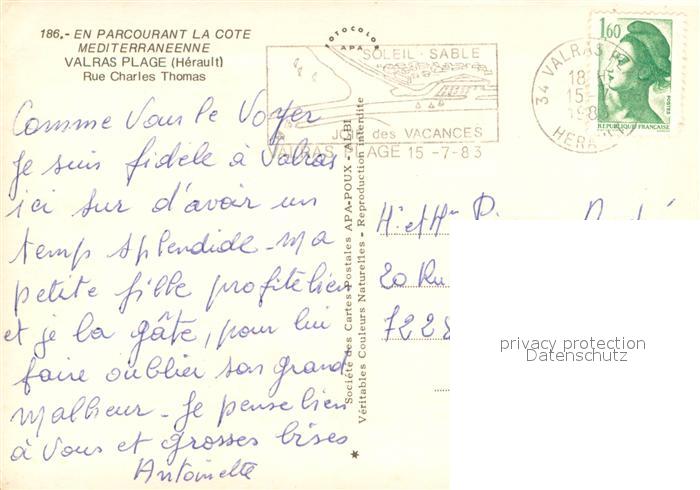 186.- EN PARCOURANT LA COTE
MEDITERRANEENNE
VALRAS PLAGE (Hérault)
Rue Charles Thomas
FOTOCOLOR
APA
SOLEIL - SABLE
des VACANCES
VALRAS PLAGE 15-7-83
34 VALRAS
18 H
15-
1983
HERAULT
1,60
POSTES
REPUBLIQUE FRANÇAISE
Comme Vous le Voyez
Je suis fidèle à Valras
ici sur d'avoir un
temps splendide - Ma
petite fille profite bien
et je la gâte, pour lui
faire oublier son grand
malheur - Je pense bien
à Vous et grosses bises
Antoinette
Société des Cartes Postales APA-POUX - ALBI
Véritables Couleurs Naturelles - Reproduction interdite
Mr et Mme
20 Ru
privacy protection
Datenschutz